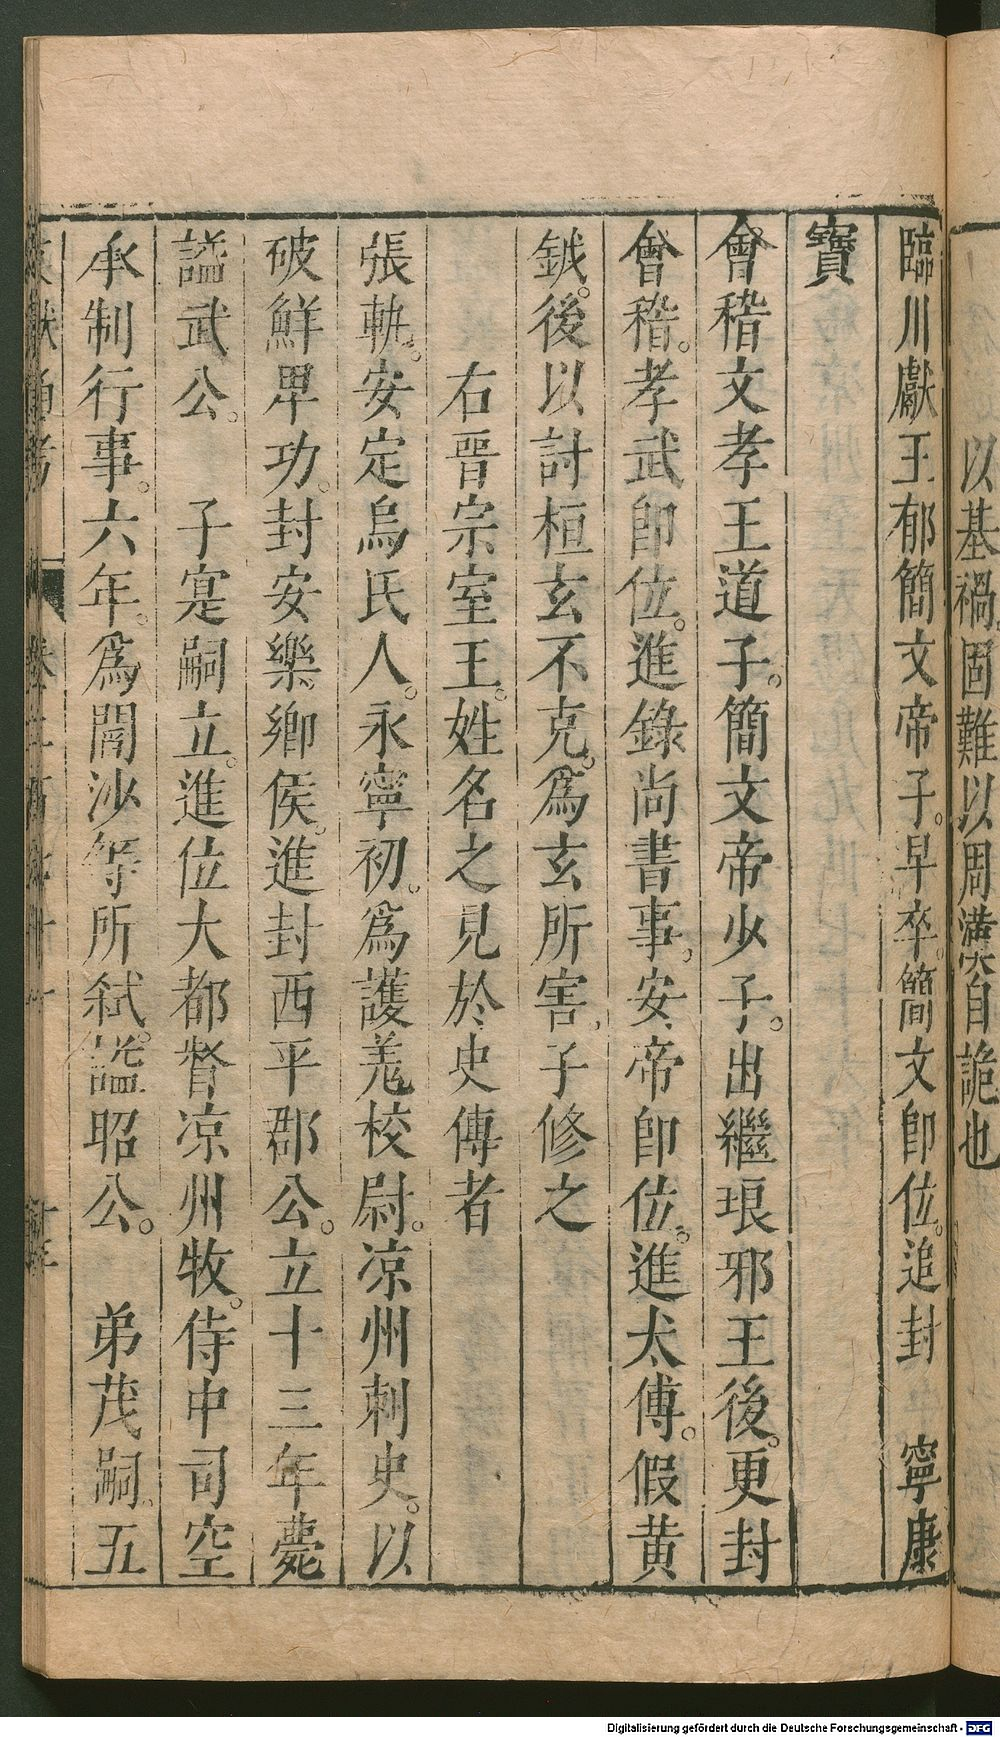 以基禍。固難以周溝自詭也
臨川獻王郁簡文帝子。早卒。簡文即位。追封 寧康
寶
會稽文孝王道子。簡文帝少子。出繼琅邪王後。更封
會稽。孝武即位。進錄尚書事。安帝即位。進太傅。假黃
鉞。後以討桓玄不克。爲玄所害。子修之
右晉宗室王。姓名之見於史傳者
張軌。安定烏氏人。永寧初。爲護羗校尉。凉州刺史。以
破鮮卑功。封安樂鄉侯。進封西平郡公。立十三年薨
謚武公。 子寔嗣立。進位大都督凉州牧。侍中司空
承制行事。六年。爲閻沙等所弒。謚昭公。 弟茂嗣。五
Digitalisierung gefördert durch die Deutsche Forschungsgemeinschaft - DFG